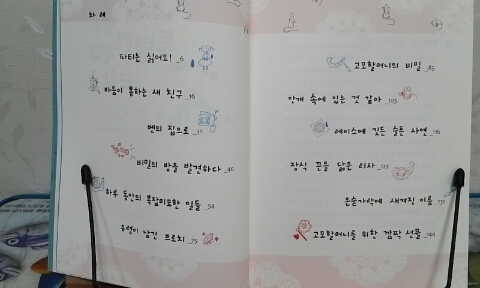 차 례
파티는 싫어요! _6
마음이 통하는 새 친구 _16
벤의 집으로 _31
비밀의 방을 발견하다 _40
하루 동안의 뒤죽박죽 일들 _54
유령이 남긴 브로치 _75
고모할머니의 비밀 _85
안개 속에 있는 것 같아 _103
레이스에 깃든 슬픈 사연 _116
장식 끈을 닮은 리사 _123
은숟가락에 새겨진 이름
고모할머니를 위한 깜짝 선물 _144